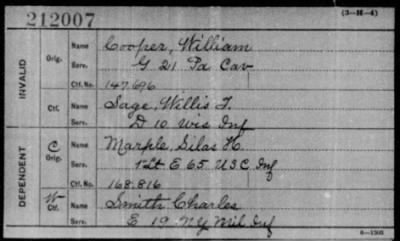 212007
(3—H—4)
INVALID
Orig.
Name Cooper, William
Serv. G 21 Pa Cav
Ctf. No. 147.696
Ctf.
Name Sage, Willis T.
Serv. D 10 Wis Inf
DEPENDENT
C
Orig.
Name Marple, Silas H.
Serv. 1 Lt E 65 U S C Inf
Ctf. No. 168.816
W
Ctf.
Name Smith Charles
Serv. E 19 N Y Mil Inf
6—1303